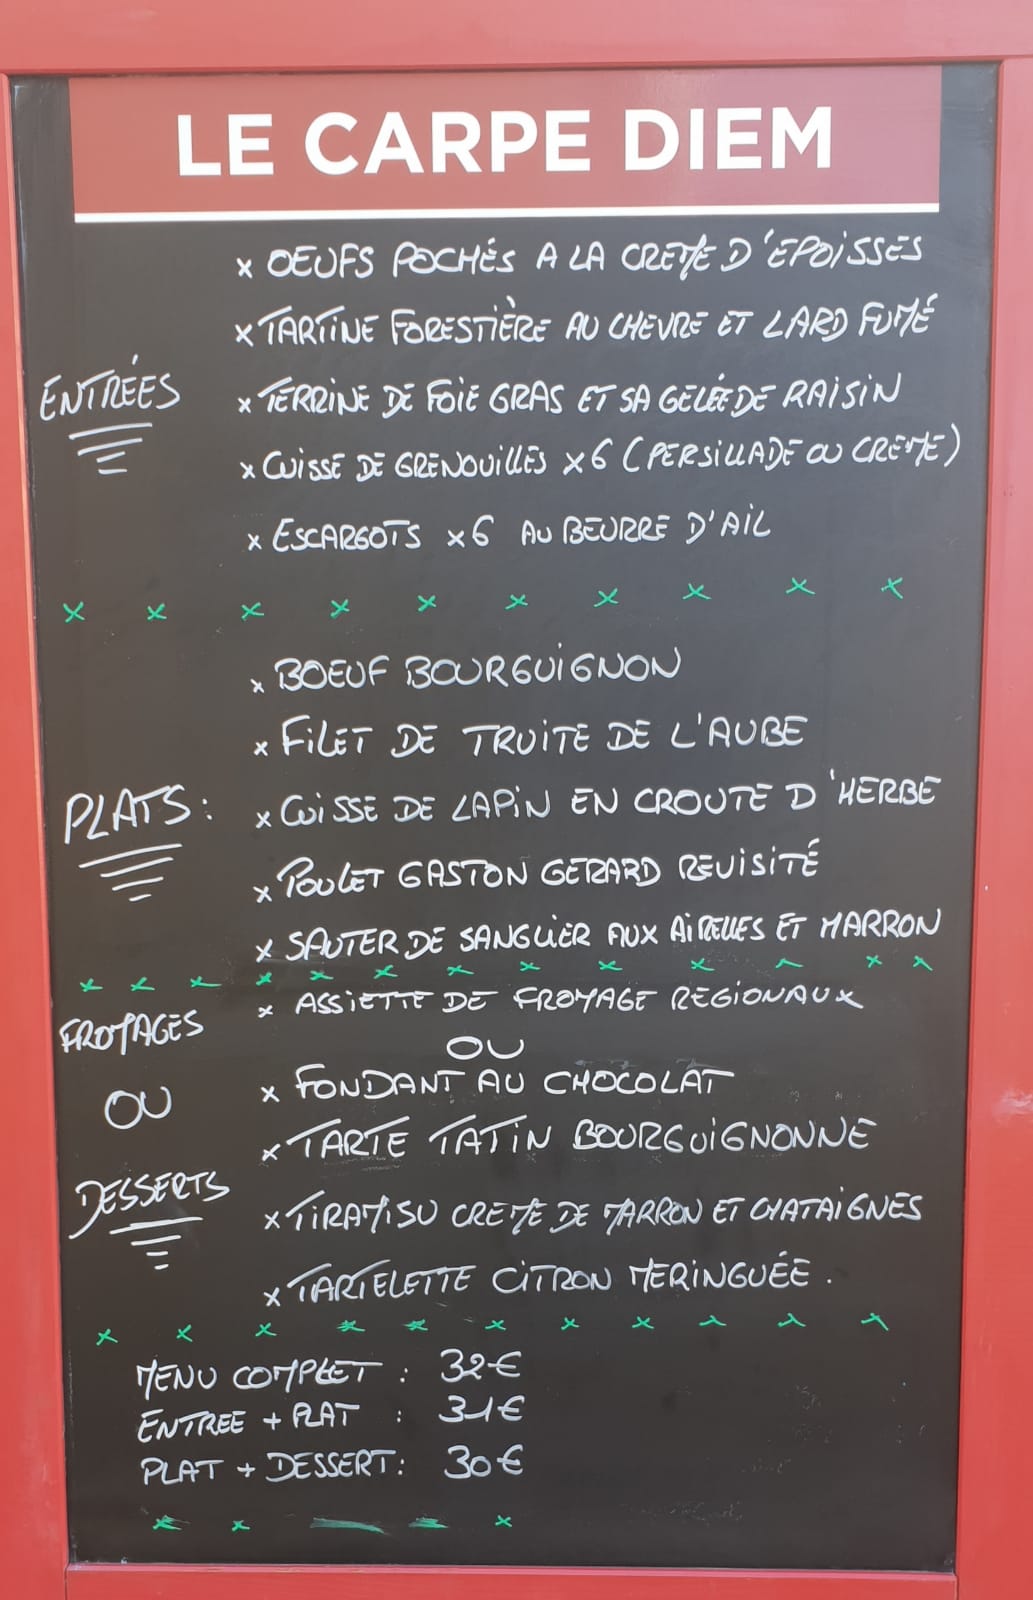 LE CARPE DIEM
ENTRÉES
x OEUFS POCHÉS A LA CREME D'EPOISSES
x TARTINE FORESTIÈRE AU CHEVRE ET LARD FUMÉ
x TERRINE DE FOIE GRAS ET SA GELÉE DE RAISIN
x CUISSE DE GRENOUILLES x6 (PERSILLADE OU CREME)
x ESCARGOTS x6 AU BEURRE D'AIL
PLATS :
x BOEUF BOURGUIGNON
x FILET DE TRUITE DE L'AUBE
x CUISSE DE LAPIN EN CROUTE D'HERBE
x POULET GASTON GERARD REVISITÉ
x SAUTER DE SANGLIER AUX AIRELLES ET MARRON
FROMAGES
OU
DESSERTS
x ASSIETTE DE FROMAGE REGIONAUX
OU
x FONDANT AU CHOCOLAT
x TARTE TATIN BOURGUIGNONNE
x TIRAMISU CREME DE MARRON ET CHATAIGNES
x TARTELETTE CITRON MERINGUÉE .
MENU COMPLET : 32€
ENTREE + PLAT : 31€
PLAT + DESSERT : 30€